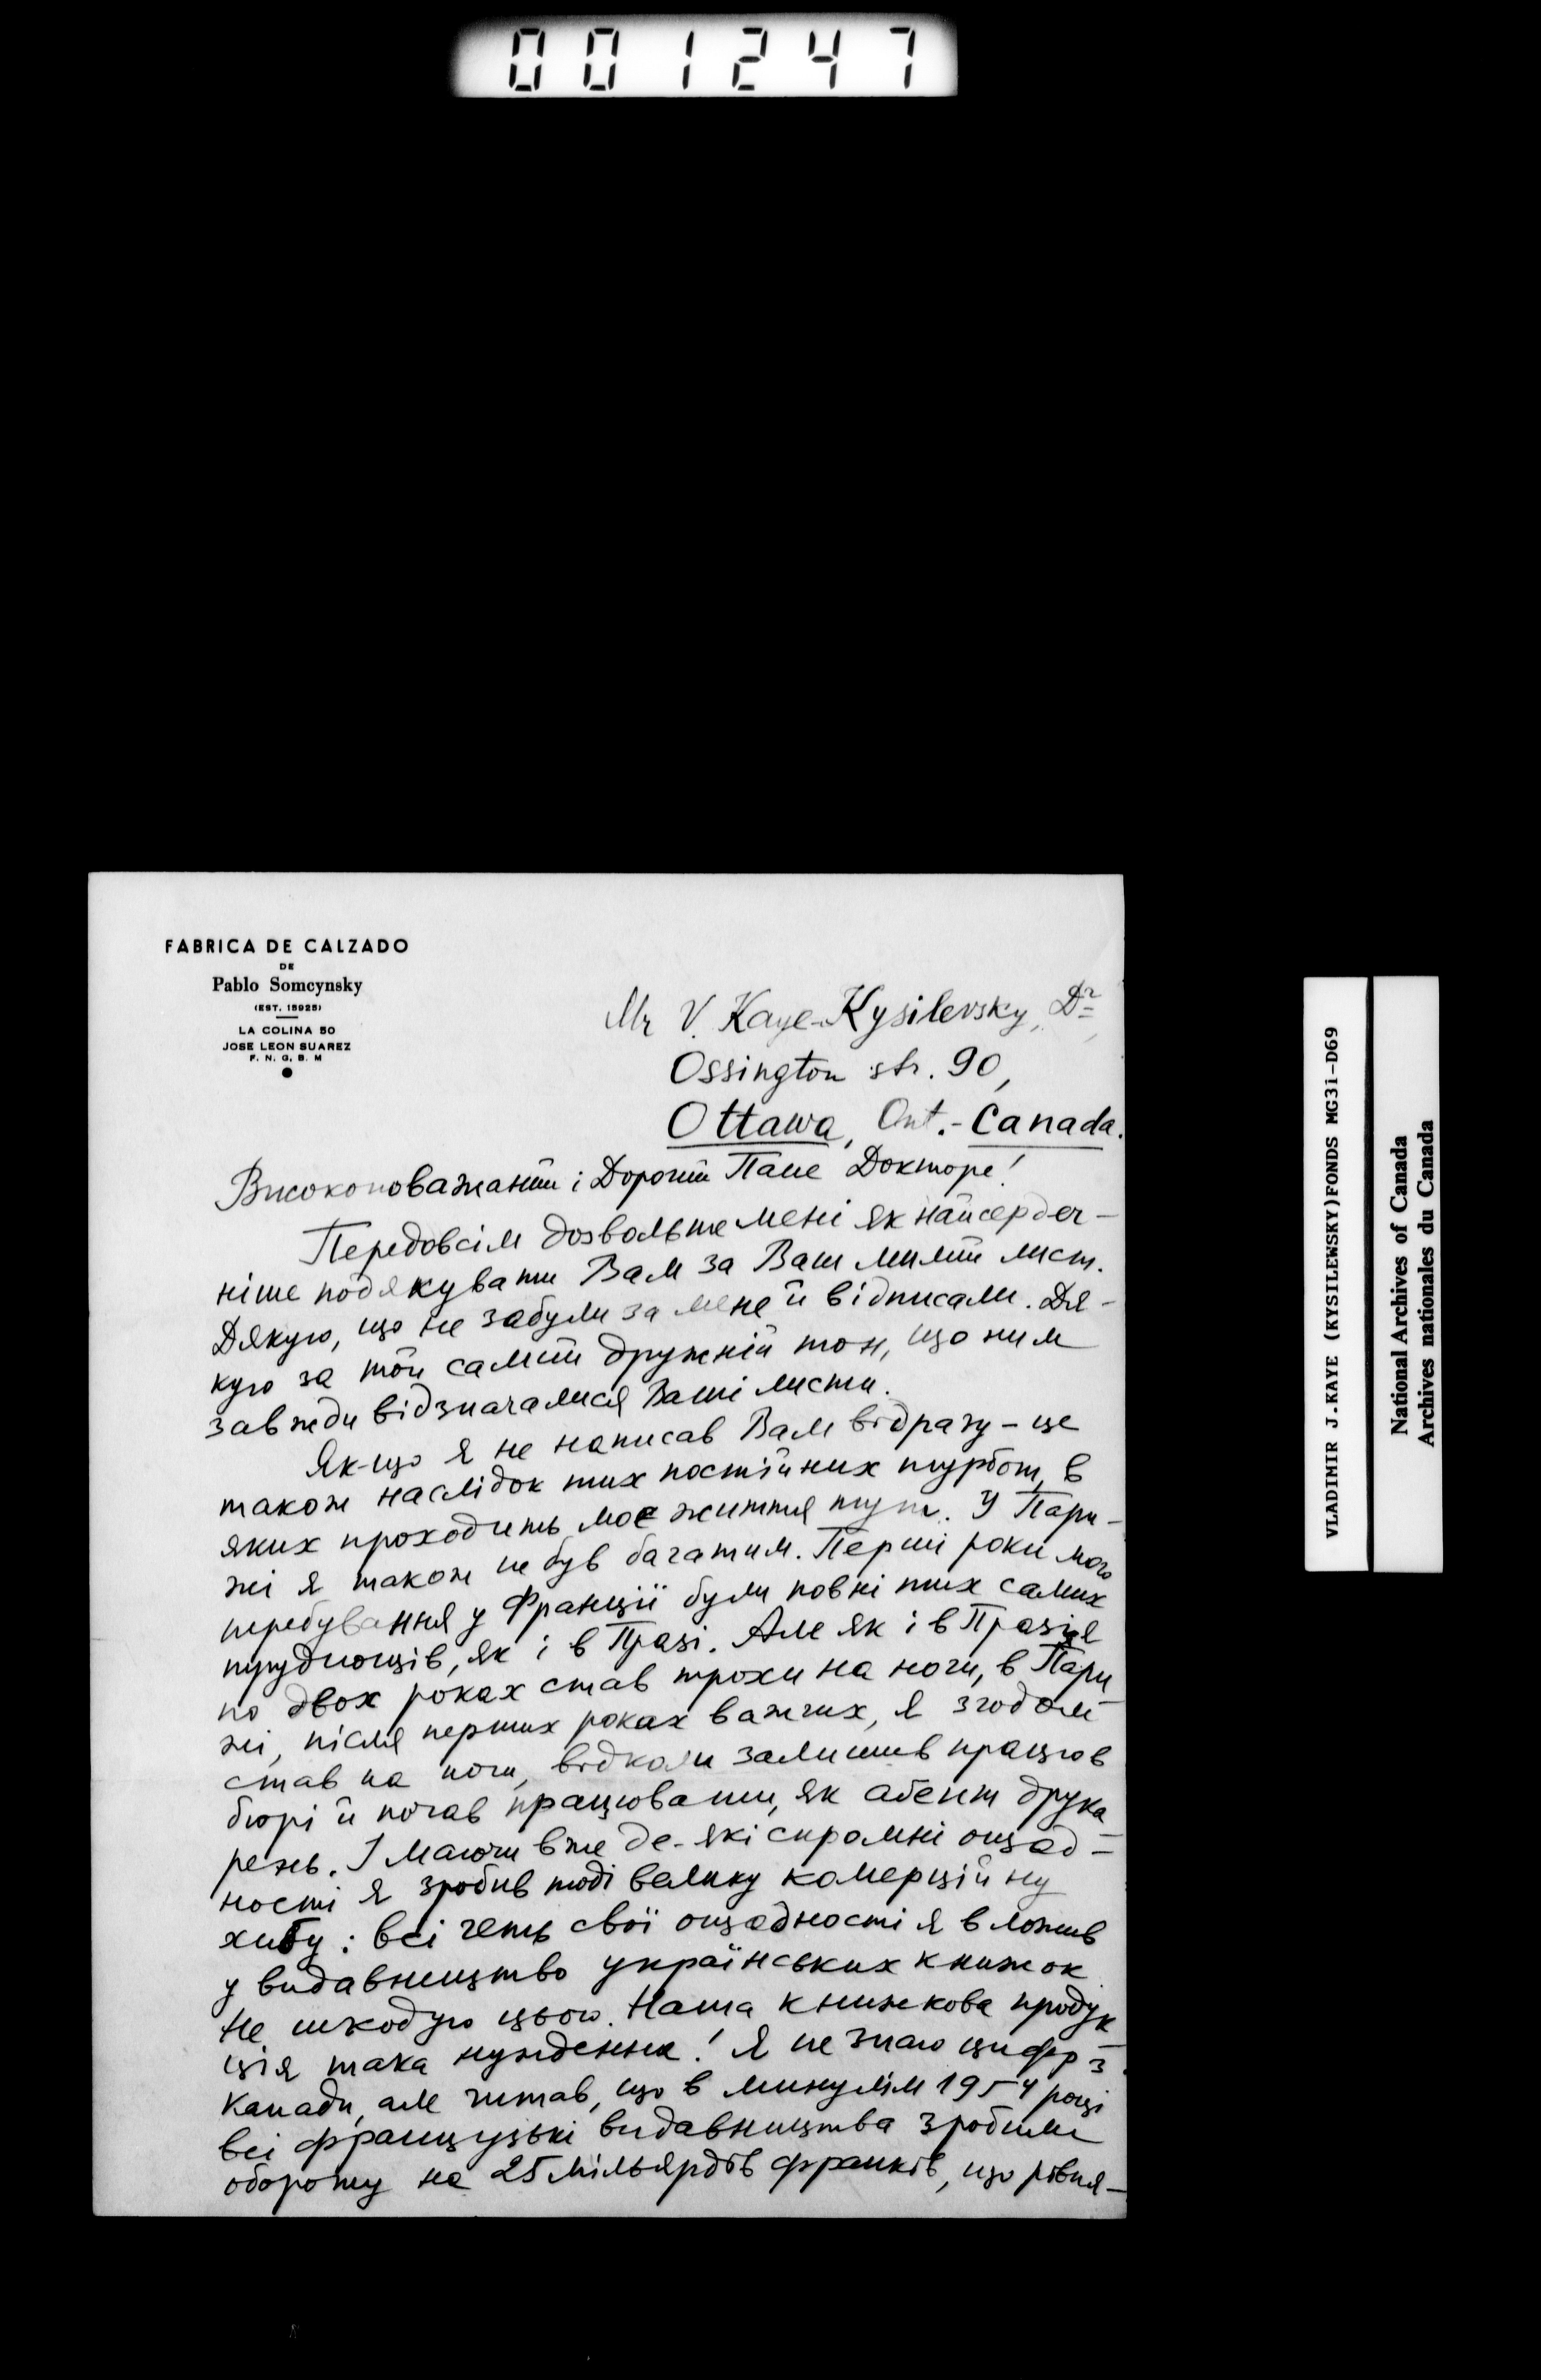 001247
FABRICA DE CALZADO
DE
Pablo Somcynsky
(EST. 15925)
LA COLINA 50
JOSE LEON SUAREZ
F. N. G. B. M
Mr V. Kaye-Kysilevsky, Dr
Ossington str. 90,
Ottawa, Ont.- Canada.
Високоповажаний і Дорогий Пане Докторе!
Передовсім дозвольте мені як найсердеч-
ніше подякувати Вам за Ваш милий лист.
Дякую, що не забули за мене й відписали. Дя-
кую за той самий дружній тон, що ним
завжди відзначалися Ваші листи.
Як-що я не написав Вам відразу - це
також наслідок тих постійних турбот, в
яких проходить моє життя тут. У Пари-
жі я також не був багатим. Перші роки мого
перебування у Франції були повні тих самих
труднощів, як і в Празі. Але як і в Празі я
по двох роках став трохи на ноги, в Пари
жі, після перших роках важчих, я згодом
став на ноги, відколи залишив працю в
бюрі й почав працювати, як агент друка
рень. І маючи вже де-які скромні ощад-
ності я зробив тоді велику комерційну
хибу: всі геть свої ощадності я вложив
у видавництво українських книжок
Не шкодую цього. Наша книжкова продук
ція така нужденна! Я не знаю цифр з
Канади, але читав, що в минулім 1954 році
всі французькі видавництва зробили
обороту на 25 мільярдів франків, що рівня-
VLADIMIR J.KAYE (KYSILEWSKY)FONDS MG3i-D69
National Archives of Canada
Archives nationales du Canada